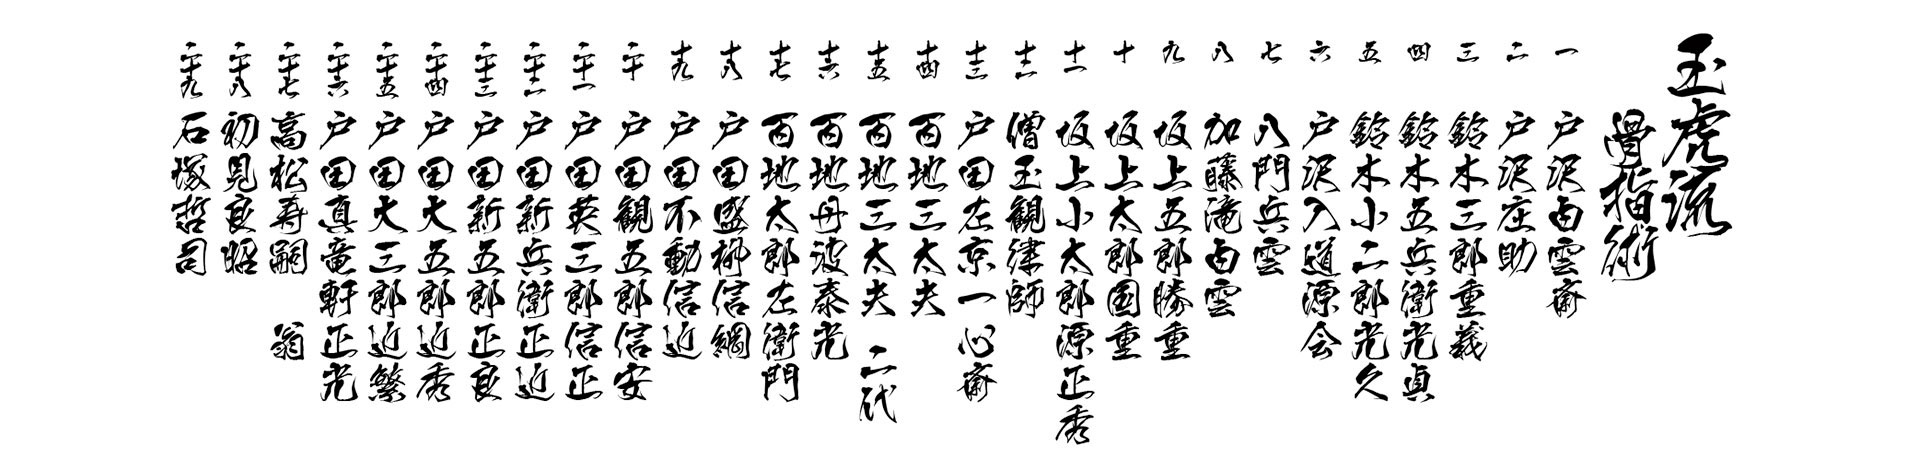 玉虎流
骨指術
一 戸沢白雲斎
二 戸沢庄助
三 鈴木三郎重義
四 鈴木五兵衛光貞
五 鈴木小二郎光久
六 戸沢入道源会
七 八門兵雲
八 加藤滝白雲
九 坂上五郎勝重
十 坂上太郎国重
十一 坂上小太郎源正秀
十二 僧玉観律師
十三 戸田左京一心斎
十四 百地三太夫
十五 百地三太夫 二代
十六 百地丹波泰光
十七 百地太郎左衛門
十八 戸田盛柳信綱
十九 戸田不動信近
二十 戸田観五郎信安
二十一 戸田英三郎信正
二十二 戸田新兵衛正近
二十三 戸田新五郎正良
二十四 戸田大五郎近秀
二十五 戸田大三郎近繁
二十六 戸田真竜軒正光
二十七 高松寿嗣 翁
二十八 初見良昭
二十九 石塚哲司